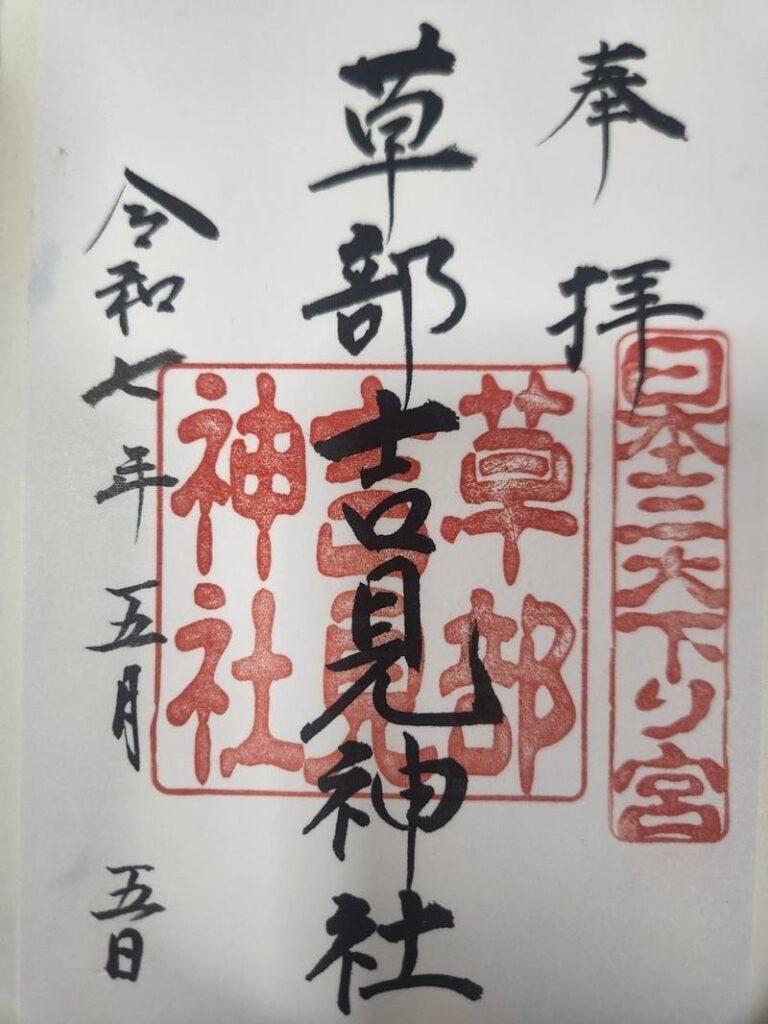 奉拝
日本三大下り宮
草部吉見神社
草部
吉見
神社
令和七年五月五日